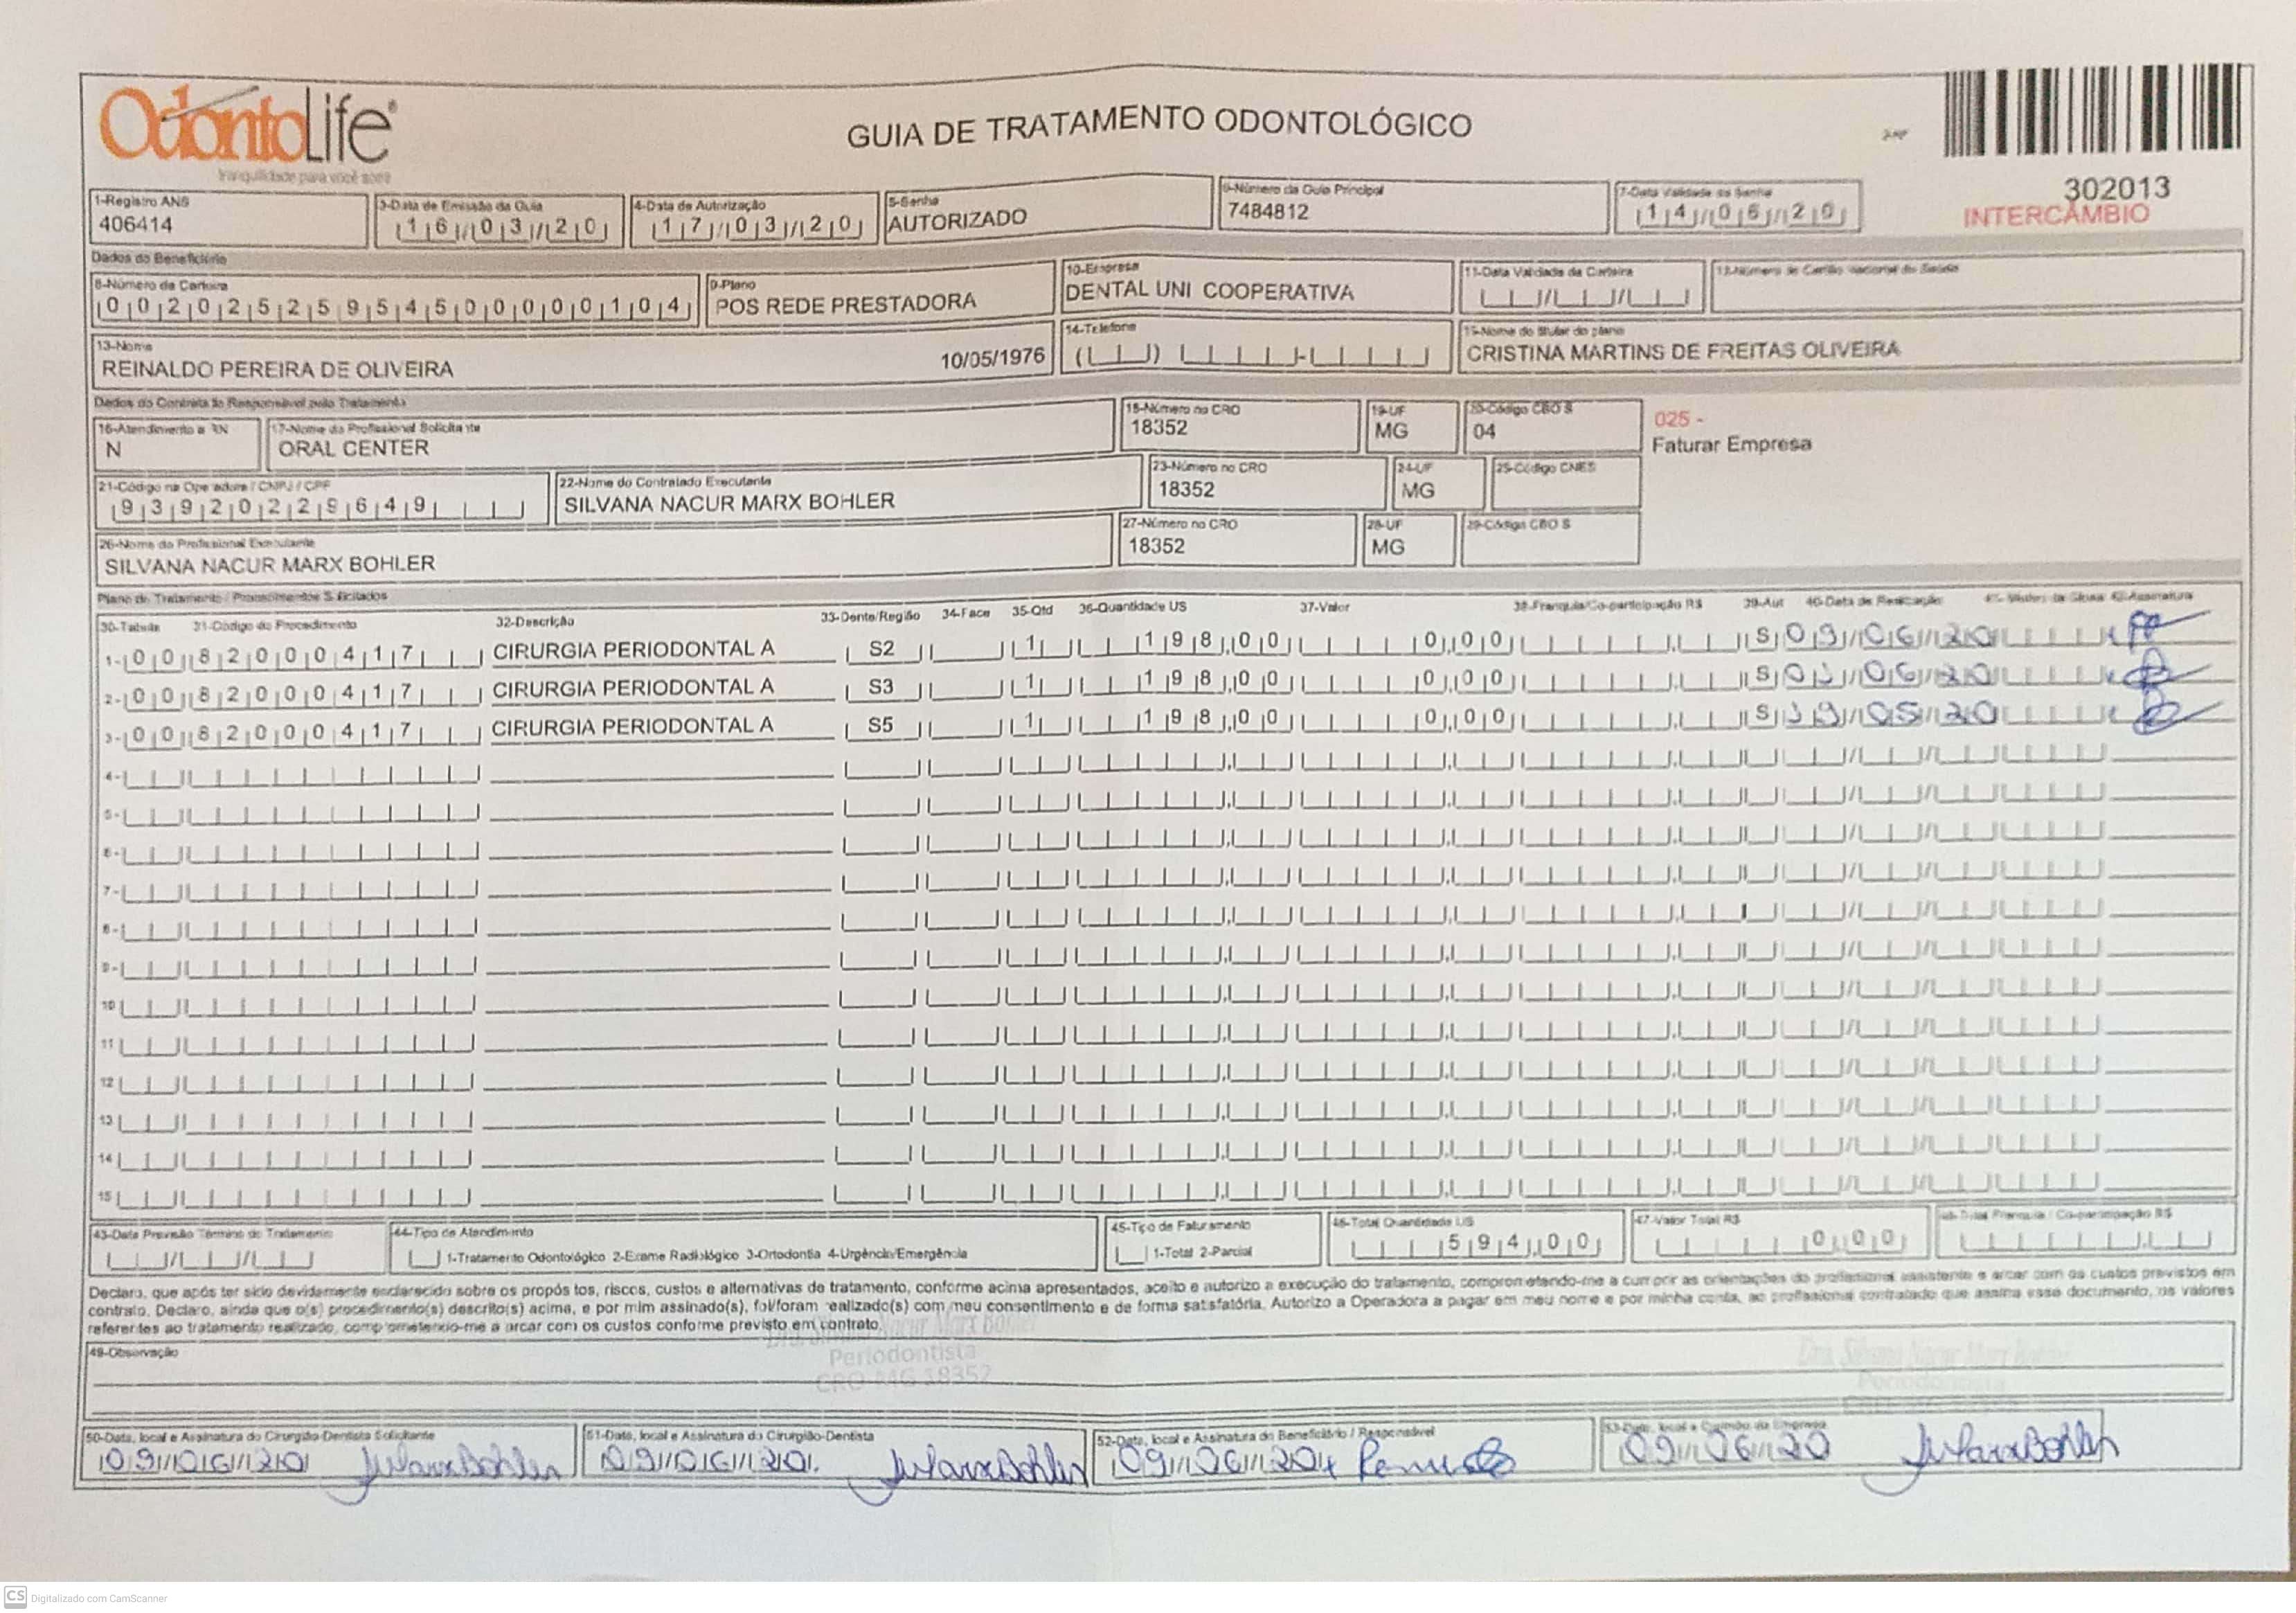 OdontoLife®
tranquilidade para você sorrir
GUIA DE TRATAMENTO ODONTOLÓGICO
302013
INTERCÂMBIO
1-Registro ANS
406414
3-Data de Emissão da Guia
16/03/20
4-Data de Autorização
17/03/20
5-Senha
AUTORIZADO
6-Número da Guia Principal
7484812
7-Data Validade da Senha
14/06/20
Dados do Beneficiário
8-Número da Carteira
00202525954500000104
9-Plano
POS REDE PRESTADORA
10-Empresa
DENTAL UNI COOPERATIVA
11-Data Validade da Carteira
12-Número do Cartão Nacional de Saúde
13-Nome
REINALDO PEREIRA DE OLIVEIRA 10/05/1976
14-Telefone
15-Nome do titular do plano
CRISTINA MARTINS DE FREITAS OLIVEIRA
Dados do Contratado Responsável pelo Tratamento
16-Atendimento a RN
N
17-Nome do Profissional Solicitante
ORAL CENTER
18-Número no CRO
18352
19-UF
MG
20-Código CBO S
04
025 -
Faturar Empresa
21-Código na Operadora / CNPJ / CPF
93920229649
22-Nome do Contratado Executante
SILVANA NACUR MARX BOHLER
23-Número no CRO
18352
24-UF
MG
25-Código CNES
26-Nome do Profissional Executante
SILVANA NACUR MARX BOHLER
27-Número no CRO
18352
28-UF
MG
29-Código CBO S
Plano de Tratamento / Procedimentos Solicitados
30-Tabela 31-Código do Procedimento 32-Descrição 33-Dente/Região 34-Face 35-Qtd 36-Quantidade US 37-Valor 38-Franquia/Co-participação R$ 39-Aut 40-Data de Realização 42-Assinatura
1- 00 82000417 CIRURGIA PERIODONTAL A S2 1 198,00 0,00 S 09/06/20
2- 00 82000417 CIRURGIA PERIODONTAL A S3 1 198,00 0,00 S /06/20
3- 00 82000417 CIRURGIA PERIODONTAL A S5 1 198,00 0,00 S /05/20
4-
5-
6-
7-
8-
9-
10
11
12
13
14
15
43-Data Previsão Término do Tratamento
44-Tipo de Atendimento
1-Tratamento Odontológico 2-Exame Radiológico 3-Ortodontia 4-Urgência/Emergência
45-Tipo de Faturamento
1-Total 2-Parcial
46-Total Quantidade US
594,00
47-Valor Total R$
0,00
48-Total Franquia / Co-participação R$
Declaro, que após ter sido devidamente esclarecido sobre os propósitos, riscos, custos e alternativas de tratamento, conforme acima apresentados, aceito e autorizo a execução do tratamento, comprometendo-me a cumprir as orientações do profissional assistente e arcar com os custos previstos em
contrato. Declaro, ainda que o(s) procedimento(s) descrito(s) acima, e por mim assinado(s), foi/foram realizado(s) com meu consentimento e de forma satisfatória. Autorizo a Operadora a pagar em meu nome e por minha conta, ao profissional contratado que assina esse documento, os valores
referentes ao tratamento realizado, comprometendo-me a arcar com os custos conforme previsto em contrato.
49-Observação
Dra. Silvana Nacur Marx Bohler
Periodontista
CRO MG 18352
Dra. Silvana Nacur Marx Bohler
Periodontista
50-Data, local e Assinatura do Cirurgião-Dentista Solicitante
09/06/20
51-Data, local e Assinatura do Cirurgião-Dentista
09/06/20
52-Data, local e Assinatura do Beneficiário / Responsável
09/06/20
53-Data, local e Carimbo da Empresa
09/06/20
CS Digitalizado com CamScanner